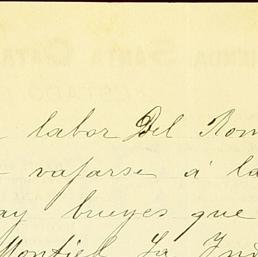 labor Del Rom
vajarse á la
ay bueyes que
Montiel La Ind